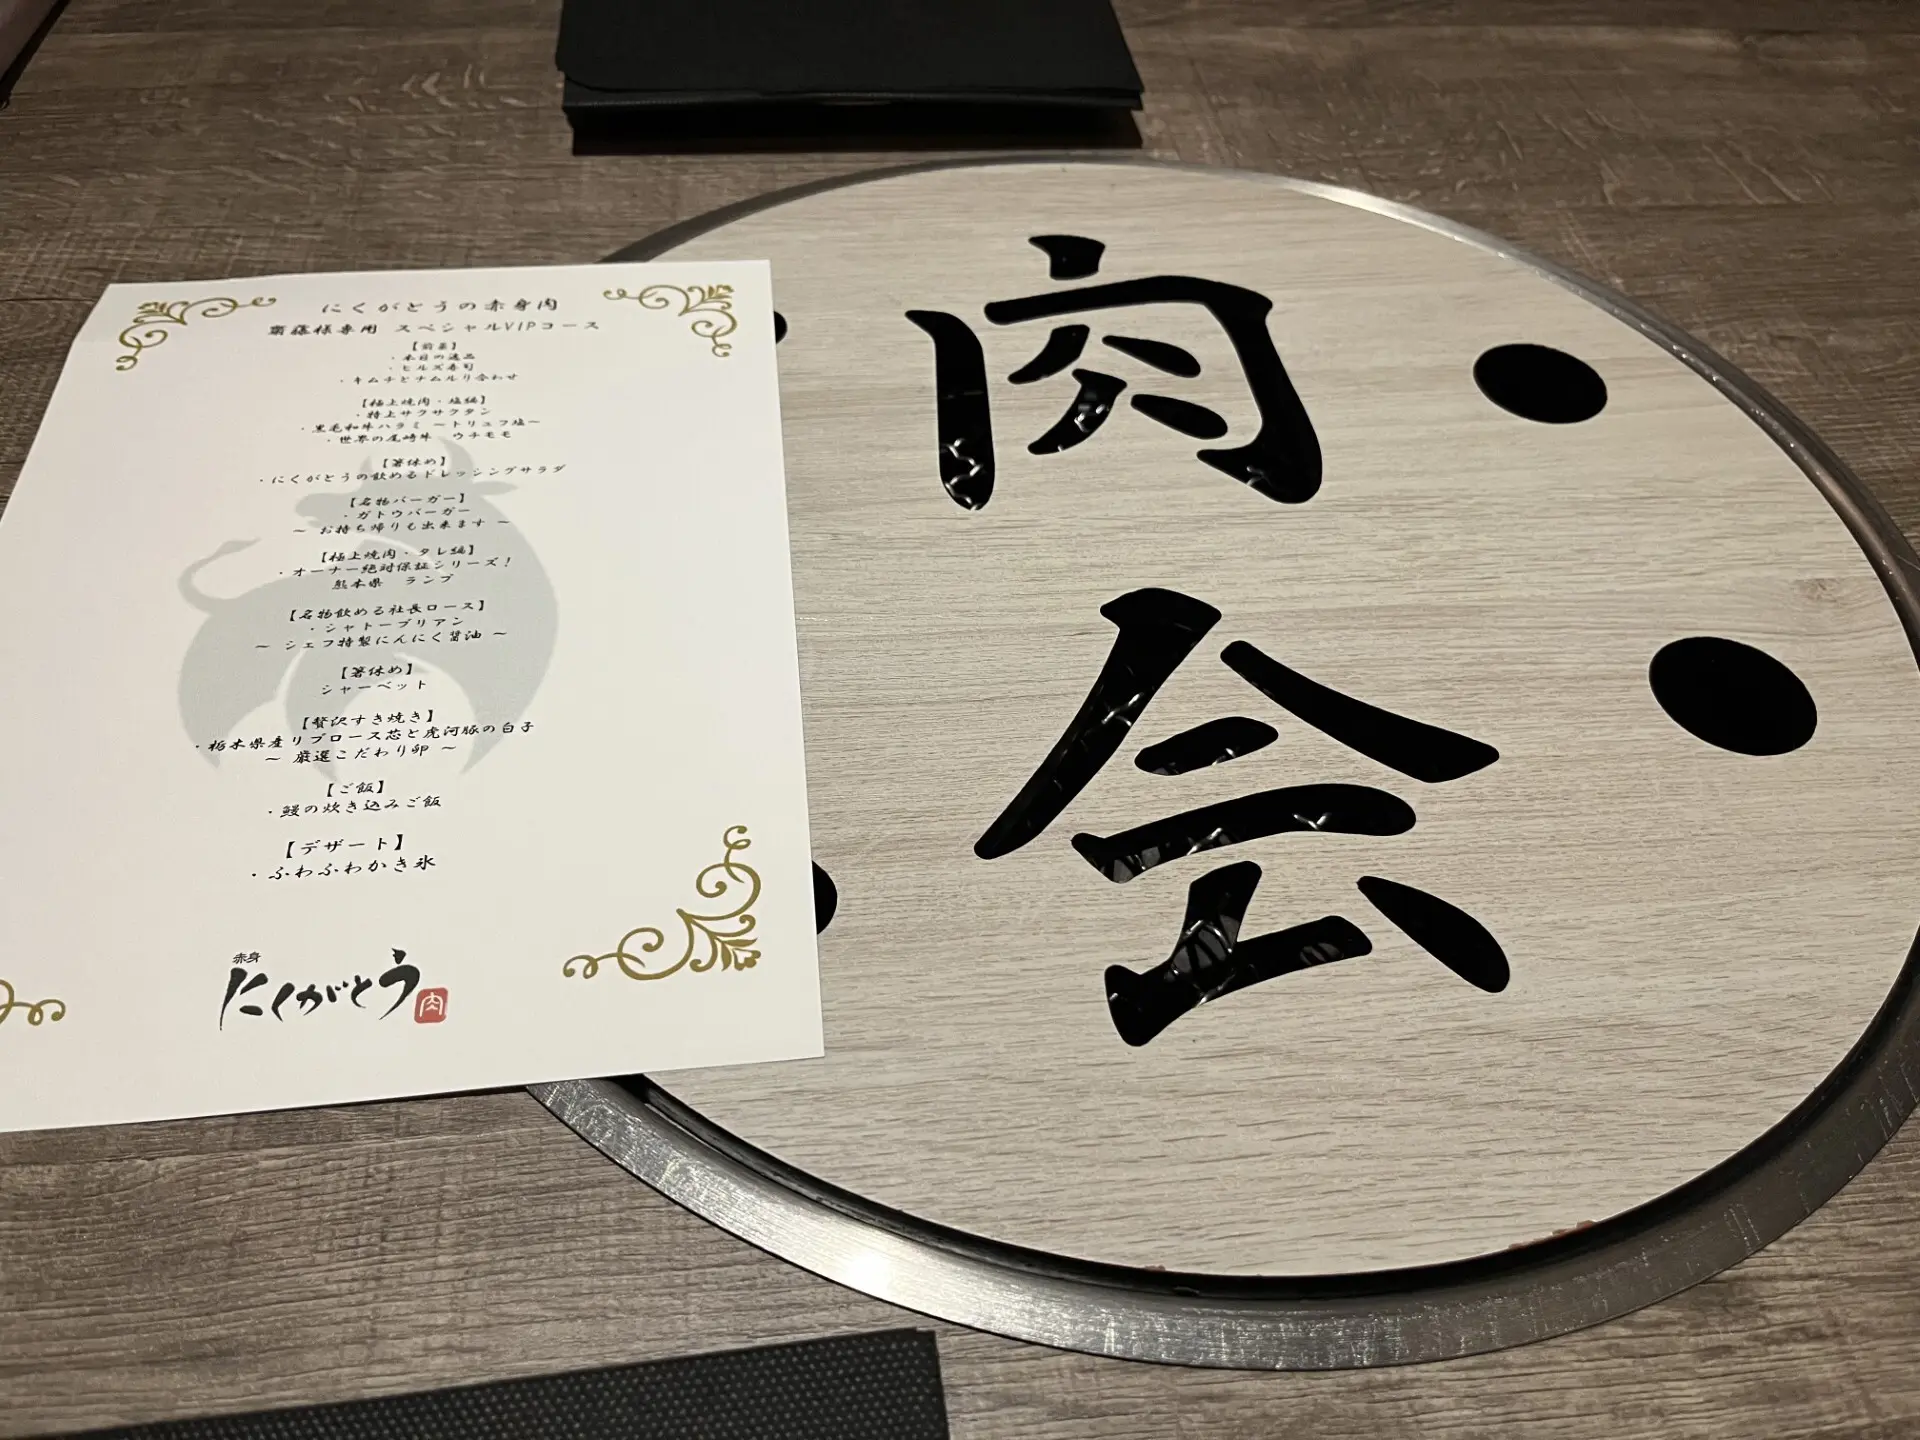 にくがとうの赤身肉
齋藤様専用 スペシャルVIPコース
【前菜】
・本日の逸品
・ヒルズ寿司
・キムチとナムルり合わせ
【極上焼肉・塩編】
・特上サクサクタン
・黒毛和牛ハラミ ～トリュフ塩～
・世界の尾崎牛 ウチモモ
【箸休め】
・にくがとうの飲めるドレッシングサラダ
【名物バーガー】
・ガトウバーガー
～ お持ち帰りも出来ます ～
【極上焼肉・タレ編】
・オーナー絶対保証シリーズ！
熊本県 ランプ
【名物飲める社長ロース】
・シャトーブリアン
～ シェフ特製にんにく醤油 ～
【箸休め】
シャーベット
【贅沢すき焼き】
・栃木県産リブロース芯と虎河豚の白子
～ 厳選こだわり卵 ～
【ご飯】
・鰻の炊き込みご飯
【デザート】
・ふわふわかき氷
赤身
にくがとう
肉
肉
会